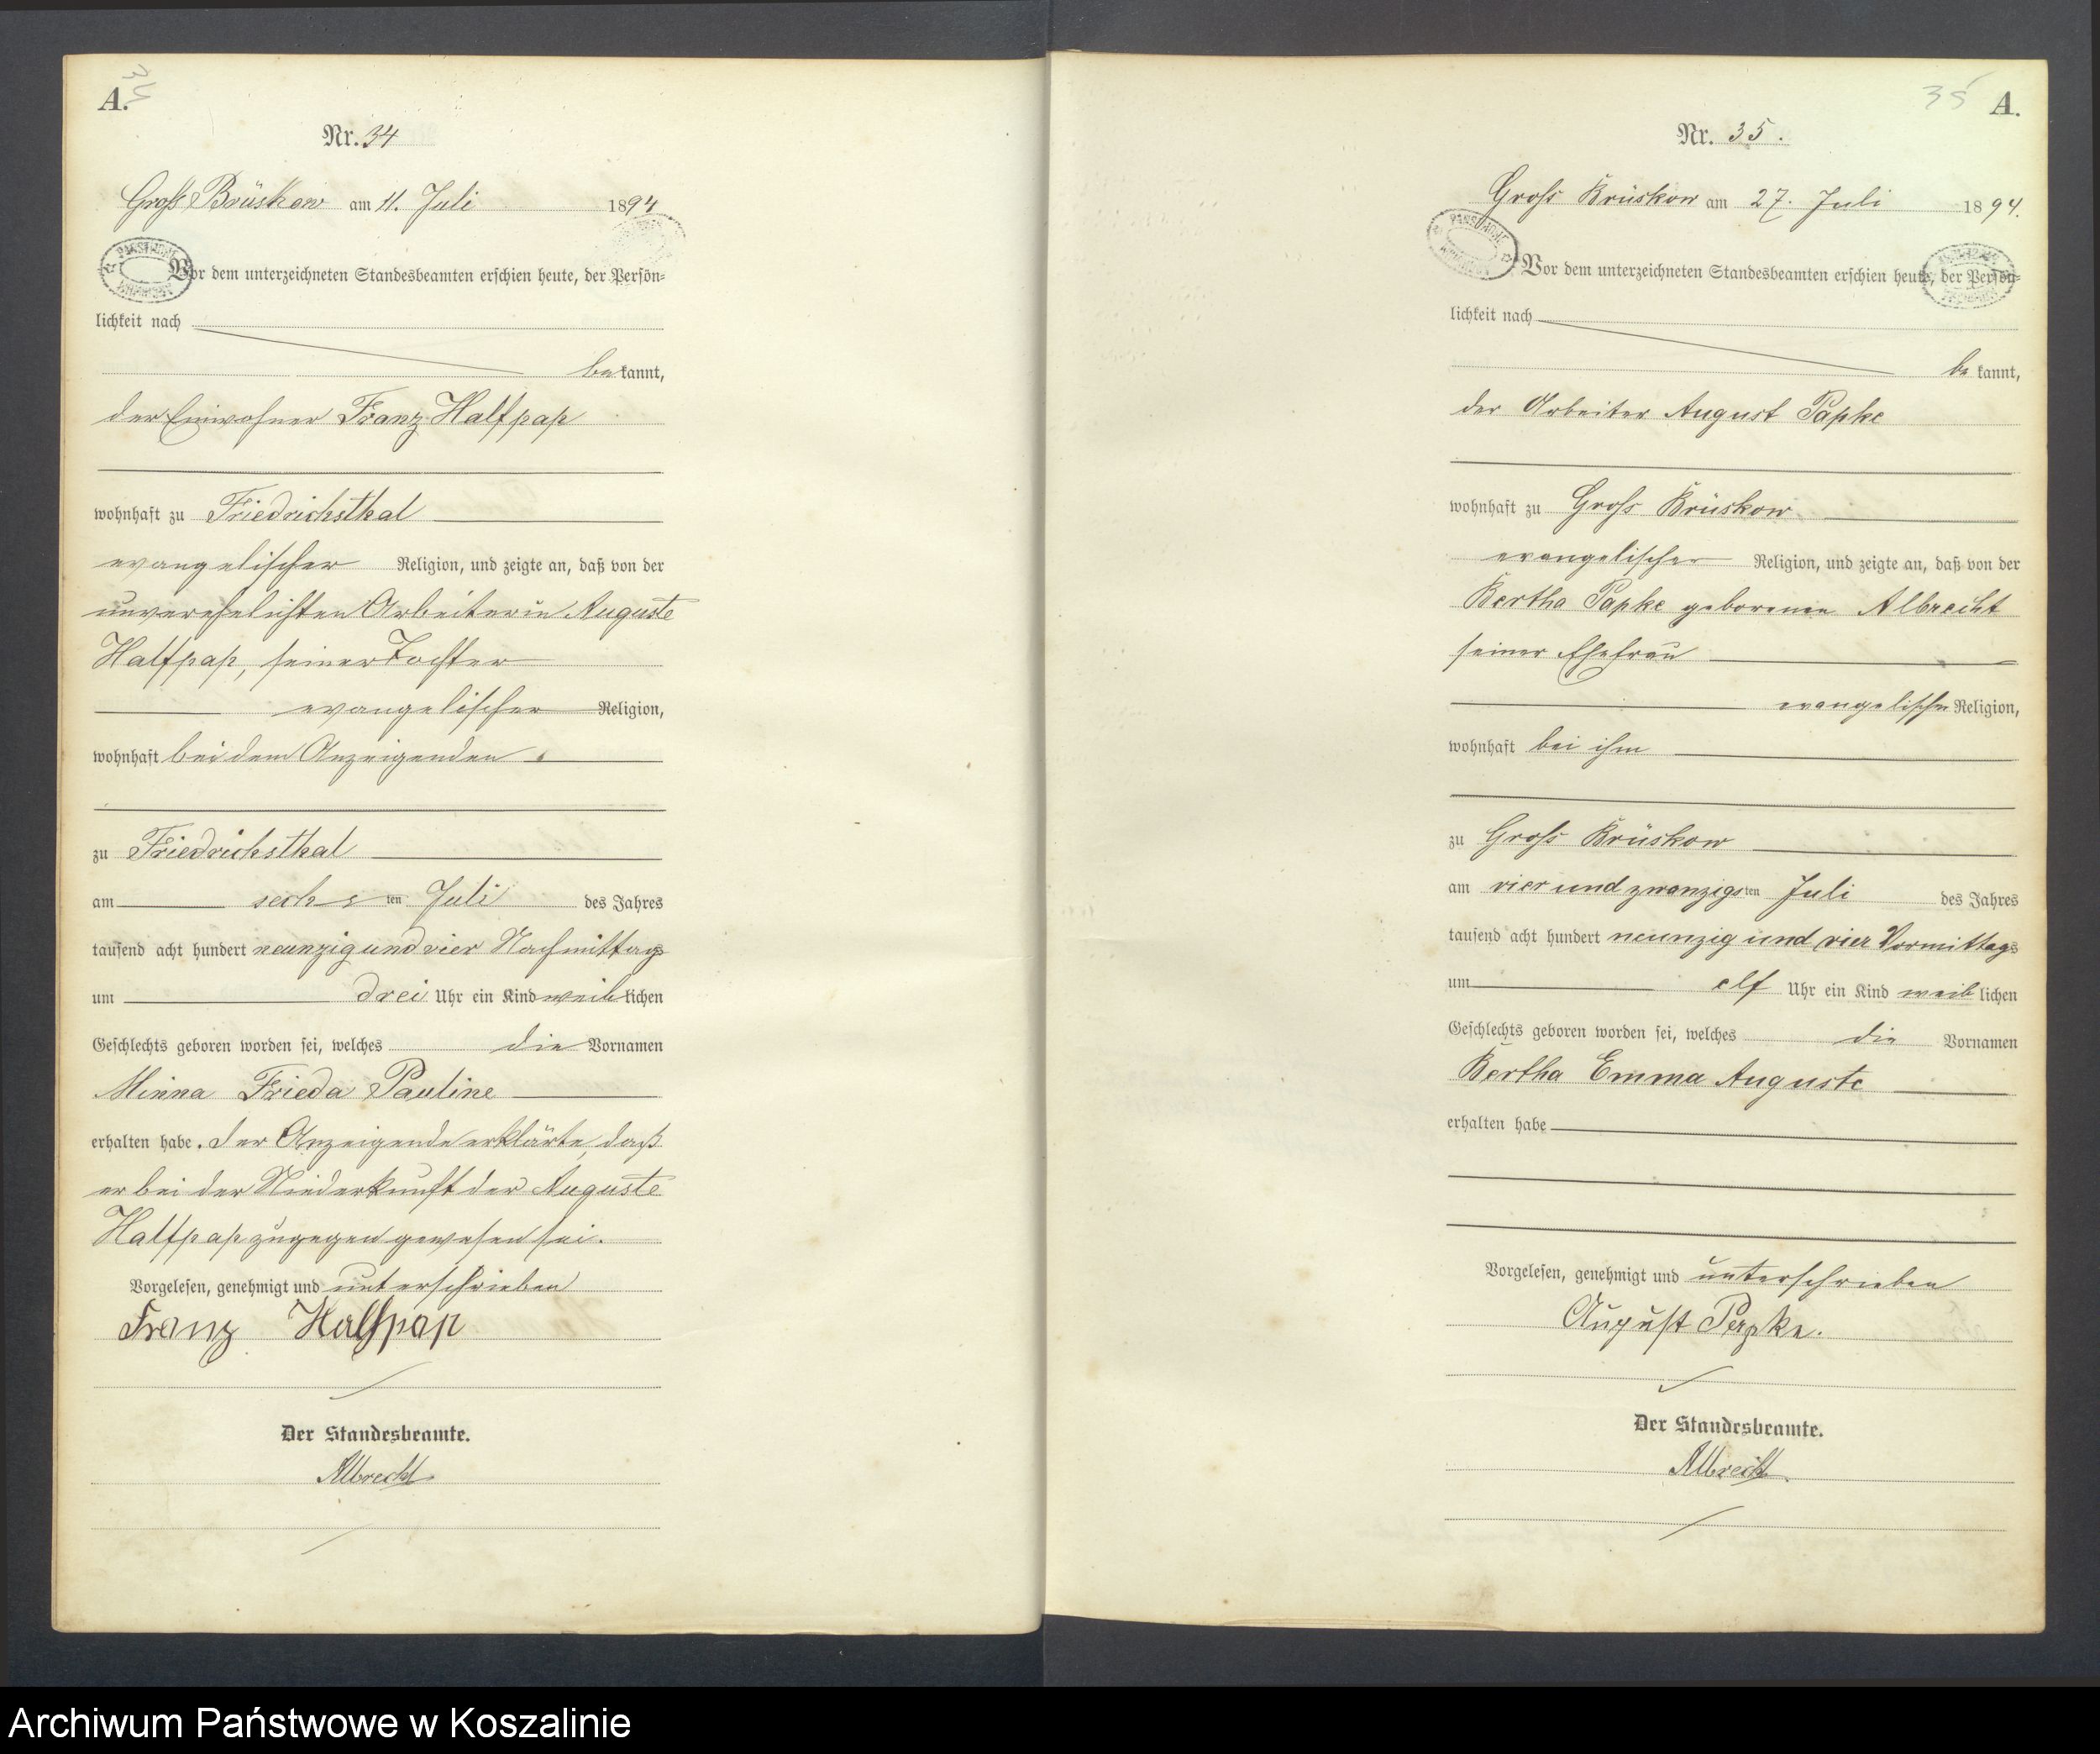 34
A.
Nr. 34
Groß Brüskow am 11. Juli 1894
Vor dem unterzeichneten Standesbeamten erschien heute, der Persön=
lichkeit nach
bekannt,
der Einwohner Franz Halfpap
wohnhaft zu Friedrichsthal
evangelischer Religion, und zeigte an, daß von der
unverehelichten Arbeiterin Auguste
Halfpap, seiner Tochter
evangelischer Religion,
wohnhaft bei dem Anzeigenden
zu Friedrichsthal
am sechsten Juli des Jahres
tausend acht hundert neunzig und vier Nachmittags
um drei Uhr ein Kind weiblichen
Geschlechts geboren worden sei, welches die Vornamen
Minna Frieda Pauline
erhalten habe. Der Anzeigende erklärte, daß
er bei der Niederkunft der Auguste
Halfpap zugegen gewesen sei.
Vorgelesen, genehmigt und unterschrieben
Franz Halfpap
Der Standesbeamte.
Albrecht
35 A.
Nr. 35.
Groß Brüskow am 27. Juli 1894.
Vor dem unterzeichneten Standesbeamten erschien heute, der Persön=
lichkeit nach
bekannt,
der Arbeiter August Papke
wohnhaft zu Groß Brüskow
evangelischer Religion, und zeigte an, daß von der
Bertha Papke geborenen Albrecht
seiner Ehefrau
evangelischer Religion,
wohnhaft bei ihm
zu Groß Brüskow
am vier und zwanzigsten Juli des Jahres
tausend acht hundert neunzig und vier Vormittags
um elf Uhr ein Kind weiblichen
Geschlechts geboren worden sei, welches die Vornamen
Bertha Emma Auguste
erhalten habe
Vorgelesen, genehmigt und unterschrieben
August Papke.
Der Standesbeamte.
Albrecht.
Archiwum Państwowe w Koszalinie